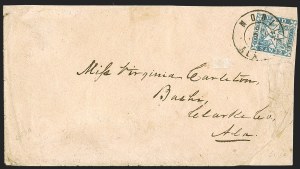 Miss Virginia Carleton,
Bashi,
Clarke Co,
Ala.